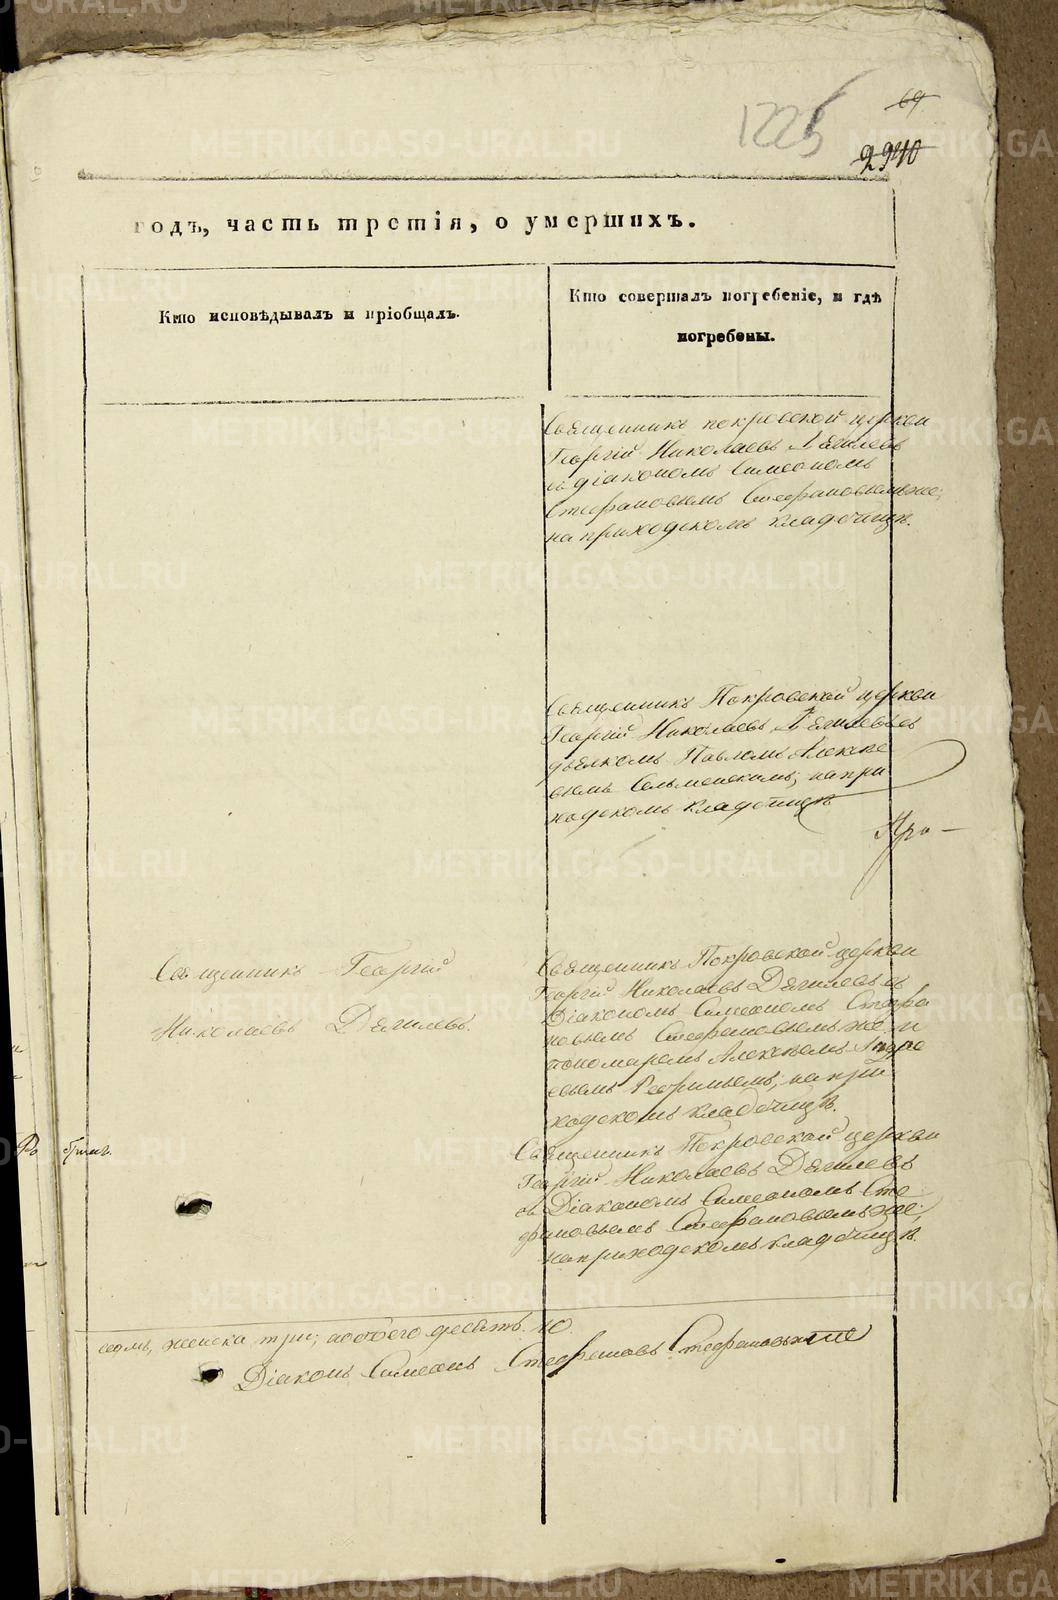 1225
69
2940
годъ, часть третія, о умершихъ.
Кто исповѣдывалъ и пріобщалъ.
Кто совершалъ погребеніе, и гдѣ
погребены.
Священникъ покровской церкви
Георгій Николаевъ Дягилевъ
съ діакономъ Симеономъ
Стефановымъ Стефановымъ же;
на приходскомъ кладбищѣ.
Священникъ Покровской церкви
Георгій Николаевъ Дягилевъ съ
дьячкомъ Павломъ Алексѣе
вымъ Сельменскимъ; на при
ходскомъ кладбищѣ
Священникъ Георгій
Николаевъ Дягилевъ.
Священникъ Покровской церкви
Георгій Николаевъ Дягилевъ съ
Діакономъ Симеономъ Стефа
новымъ Стефановымъ же и
пономаремъ Алексѣемъ
на при
ходскомъ кладбищѣ.
Священникъ Покровской церкви
Георгій Николаевъ Дягилевъ
съ Діакономъ Симеономъ Сте
фановымъ Стефановымъ же;
на приходскомъ кладбищѣ.
семь, женска три; а обоего десять. 10.
Діаконъ Симеонъ Стефановъ Стефановъ же
METRIKI.GASO-URAL.RU